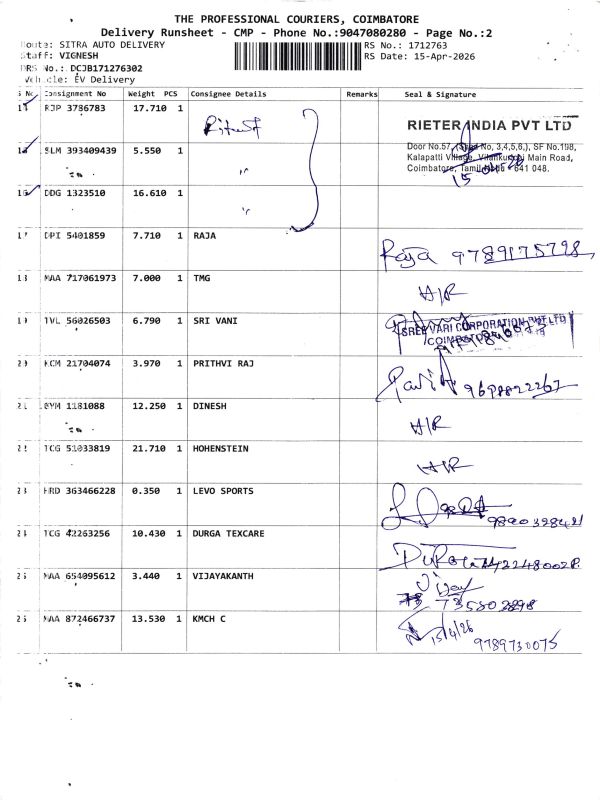 THE PROFESSIONAL COURIERS, COIMBATORE
Delivery Runsheet - CMP - Phone No.:9047080280 - Page No.:2
Route: SITRA AUTO DELIVERY RS No.: 1712763
Staff: VIGNESH RS Date: 15-Apr-2026
DRS No.: DCJB171276302
Vehicle: EV Delivery
S No Consignment No Weight PCS Consignee Details Remarks Seal & Signature
14 RJP 3786783 17.710 1
RIETER INDIA PVT LTD
Door No.57, No, 3,4,5,6,), SF No.198,
Kalapatti Village, Vilankurichi Main Road,
Coimbatore, Tamil 641 048.
SLM 393409439 5.550 1
16 DDG 1323510 16.610 1
17 DPI 5401859 7.710 1 RAJA Raja 9789175798
18 MAA 717061973 7.000 1 TMG H/R
19 TVL 56026503 6.790 1 SRI VANI
SREEVARI CORPORATION PVT LTD
20 KCM 21704074 3.970 1 PRITHVI RAJ 9698822267
21 1181088 12.250 1 DINESH H/R
22 TCG 51033819 21.710 1 HOHENSTEIN H/R
23 HRD 363466228 0.350 1 LEVO SPORTS
24 TCG 42263256 10.430 1 DURGA TEXCARE
25 MAA 654095612 3.440 1 VIJAYAKANTH Vijay
26 MAA 872466737 13.530 1 KMCH C 15/4/26
9789730075